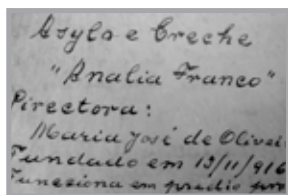 Asylo e Creche
"Analia Franco"
Directora:
Maria José de Olivei
Fundado em 13/11/916
Funcciona em predio pro